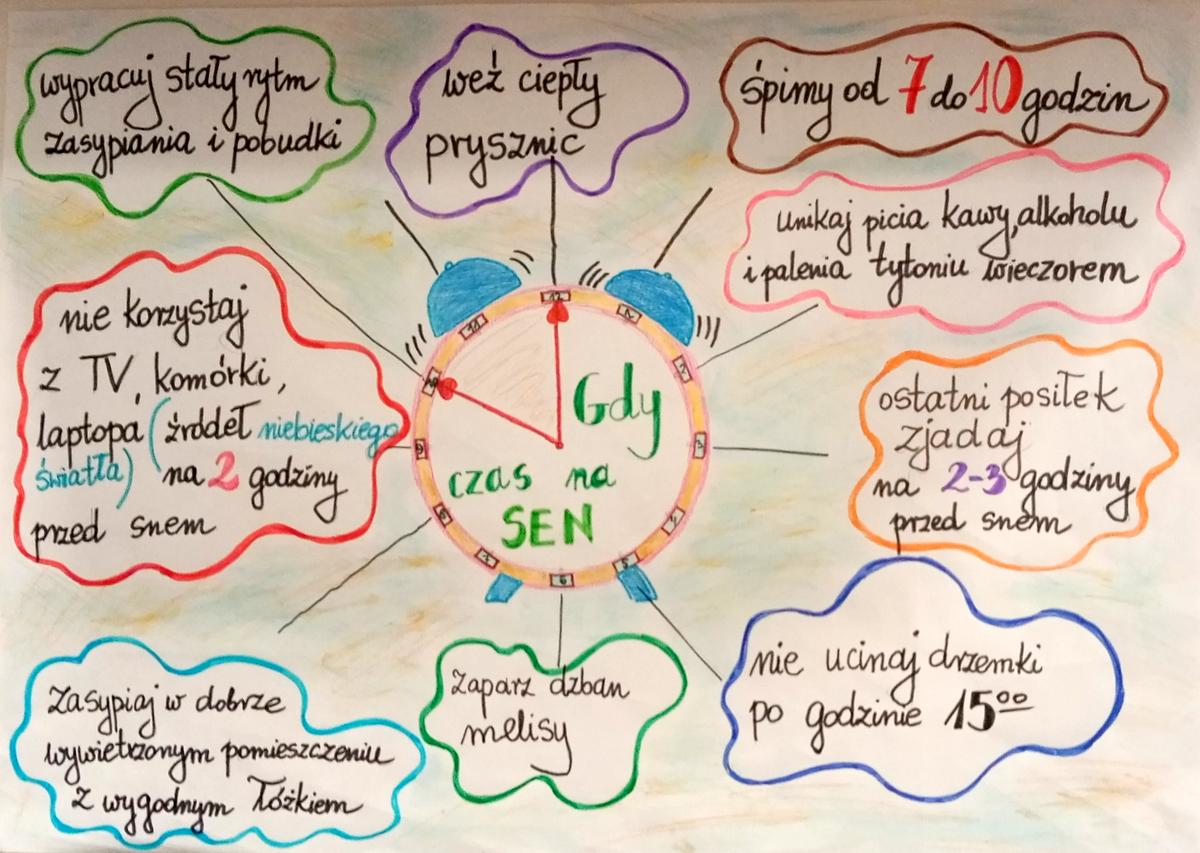 wypracuj stały rytm
zasypiania i pobudki
weź ciepły
prysznic
śpimy od 7 do 10 godzin
unikaj picia kawy, alkoholu
i palenia tytoniu wieczorem
nie korzystaj
z TV, komórki,
laptopa (źródeł niebieskiego
światła) na 2 godziny
przed snem
Gdy
czas na
SEN
12
3
5
6
9
ostatni posiłek
zjadaj
na 2-3 godziny
przed snem
zasypiaj w dobrze
wywietrzonym pomieszczeniu
z wygodnym łóżkiem
zaparz dzban
melisy
nie ucinaj drzemki
po godzinie 15⁰⁰